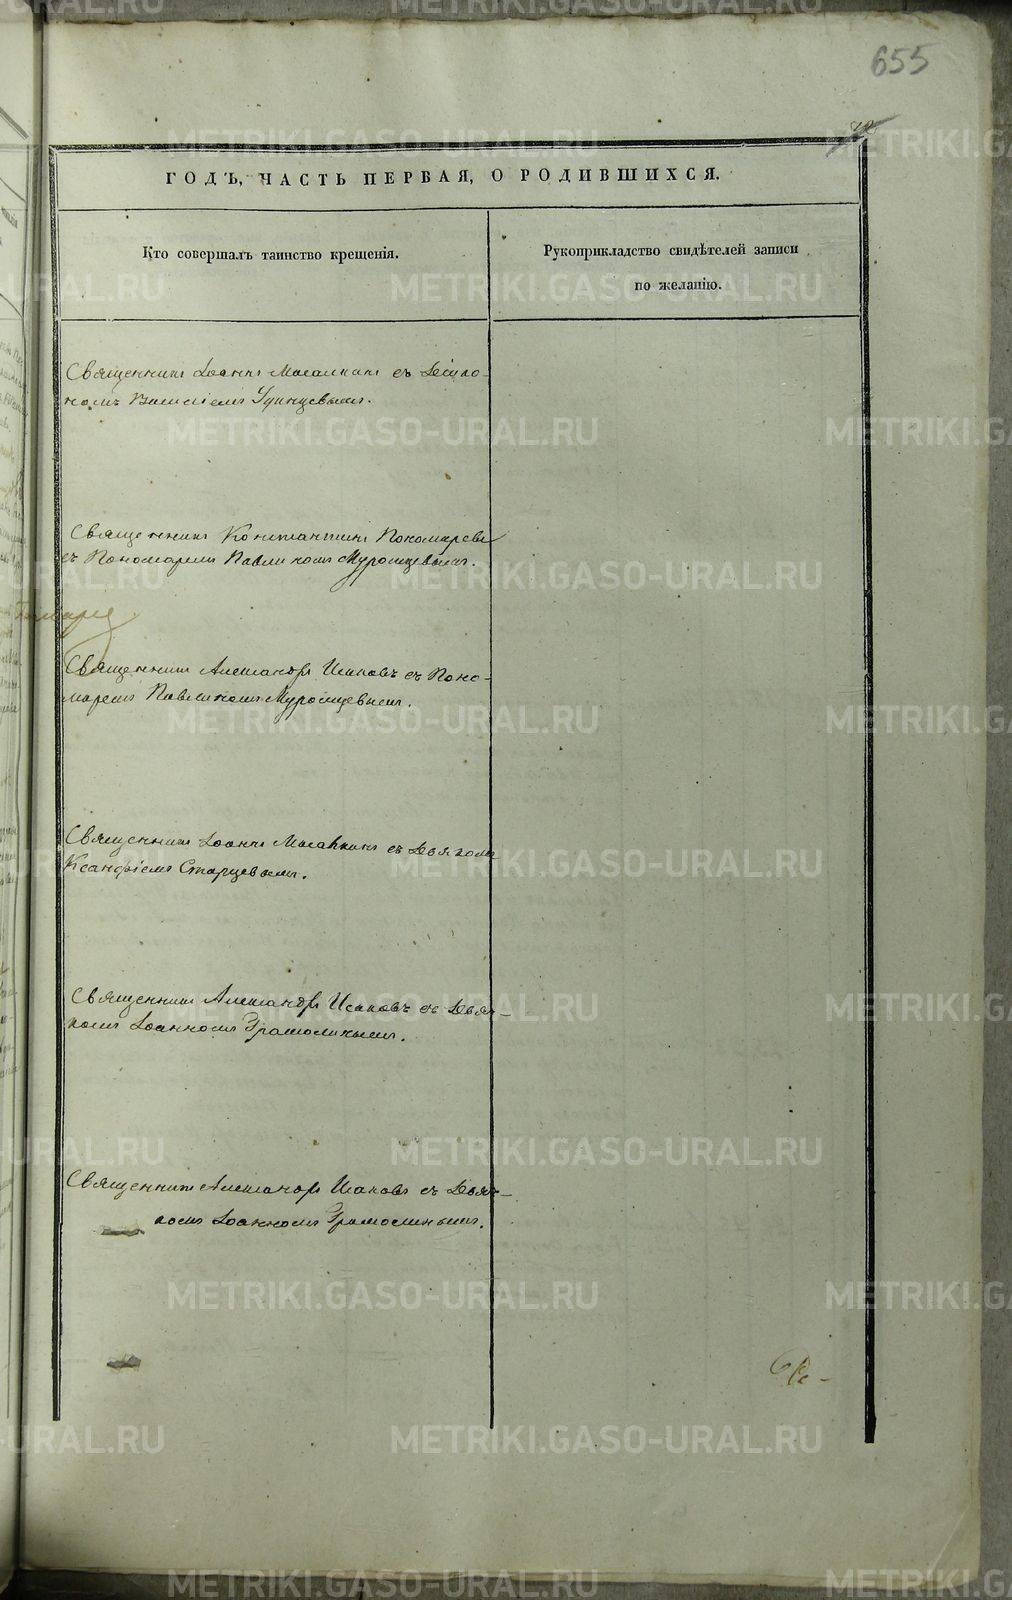 655
ГОДЪ, ЧАСТЬ ПЕРВАЯ, О РОДИВШИХСЯ.
Кто совершалъ таинство крещенія.
Рукоприкладство свидѣтелей записи
по желанію.
Священникъ Іоаннъ съ Діако-
номъ Василіемъ Удинцевымъ.
Священникъ Константинъ Пономаревъ
съ Пономаремъ Павлиномъ Муромцевымъ.
Священникъ Александръ Исаковъ съ Поно-
маремъ Павлиномъ Муромцевымъ.
Священникъ Іоаннъ съ Дьякомъ
Ксанфіемъ Старцевымъ.
Священникъ Александръ Исаковъ съ Дьяч-
комъ Іоанномъ
Священникъ Александръ Исаковъ съ Дьяч-
комъ Іоанномъ
METRIKI.GASO-URAL.RU